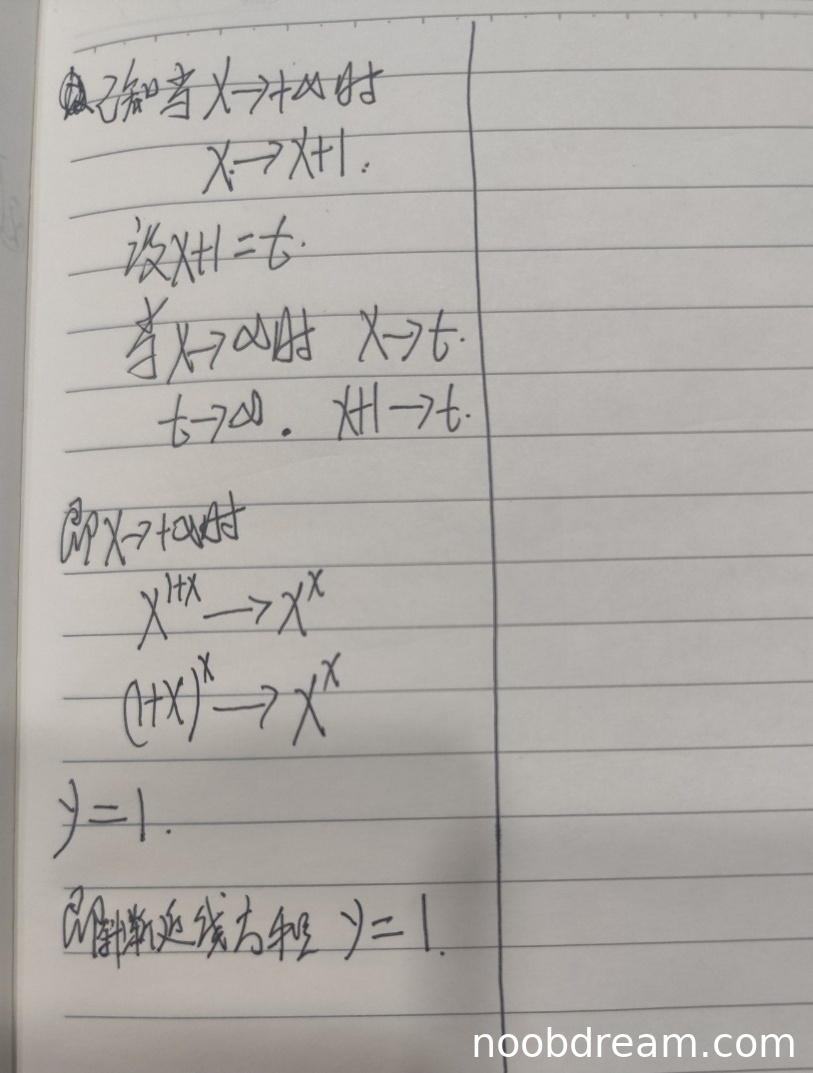 已知当x→+∞时
x→x+1.
设x+1=t.
当x→∞时 x→t.
t→∞. x+1→t.
即x→+∞时
x^{1+x}→x^x
(1+x)^x→x^x
y=1.
即斜渐近线方程 y=1.
noobdream.com